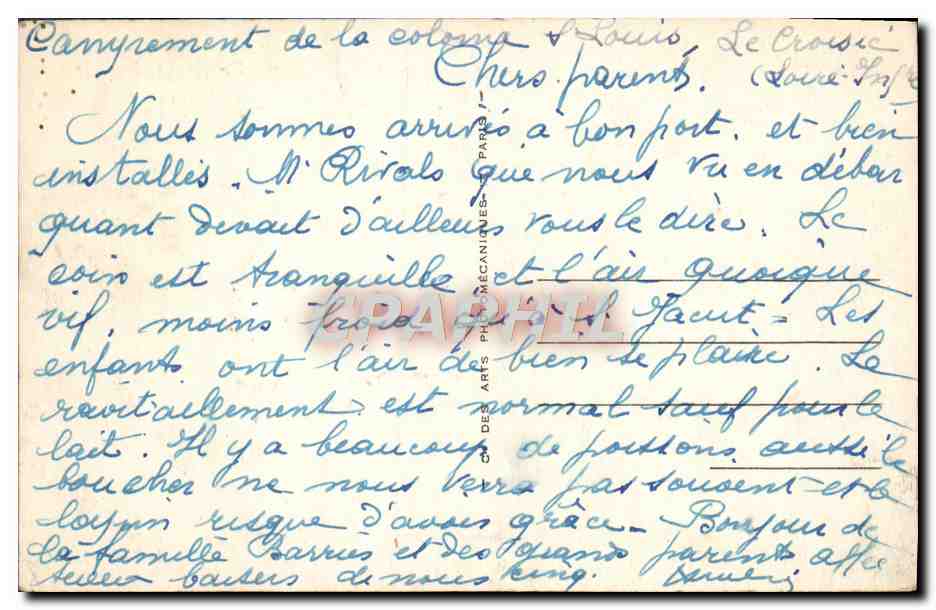 Campement de la colonie St Louis, Le Croisic
Chers parents, (Loire-Infre
Nous sommes arrivés à bon port, et bien
installés. Mr Rivals que nous vu en débar
quant devait d'ailleurs vous le dire. Le
coin est tranquille et l'air quoique
vif, moins froid qu'à St Jacut = Les
enfants ont l'air de bien se plaire. Le
ravitaillement est normal sauf pour le
lait. Il y a beaucoup de poissons, aussi le
boucher ne nous verra pas souvent et le
lapin risque d'avoir grâce = Bonjour de
la famille Barriès et des grands parents affec
tueux baisers de nous cinq.
Cie DES ARTS PHOTOMÉCANIQUES - PARIS
CPAPHIL